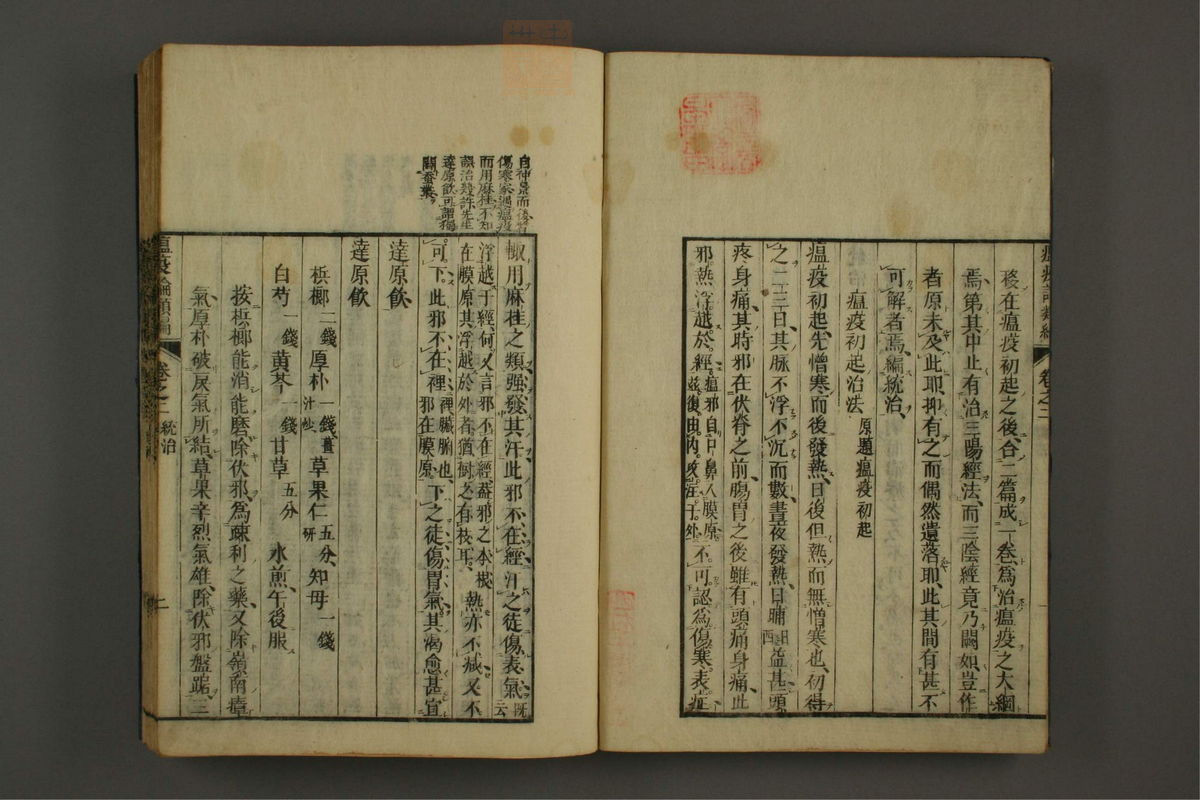 瘟疫論類編 卷之二
稜在瘟疫初起之後、合二篇成一卷、爲治瘟疫之大綱
焉、第其中止有治三陽經法、而三陰經竟乃闕如、豈作
者原未及此耶、抑有之而偶然遺落耶、此其間有甚不
可解者焉、編統治、
瘟疫初起治法 原題瘟疫初起
瘟疫初起、先憎寒而後發熱、日後但熱而無憎寒也、初得
之二三日、其脉不浮不沉而數、晝夜發熱、日晡益甚、頭
疼身痛、其時邪在伏脊之前、腸胃之後、雖有頭痛身痛、此
邪熱浮越於經、瘟邪自口鼻入膜原、不可認爲傷寒表症、
自仲景而後
傷寒家遇瘟疫
而用麻桂不知
誤治幾許先生
達原飲可謂獨
闢蚕叢
輙用麻桂之類、强發其汗、此邪不在經、汗之徒傷表氣、既云
浮越于經、何又言邪不在經、蓋邪之本根
在膜原、其浮越於外者、猶樹之有枝耳、熱亦不减、又不
可下、此邪不在裡、裡臟腑也、邪在膜原、下之徒傷胃氣、其渴愈甚、宜
達原飲、
達原飲
梹榔 二錢 厚朴 一錢薑汁炒 草果仁 五分研 知母 一錢
白芍 一錢 黄芩 一錢 甘草 五分 水煎、午後服
按梹榔能消能磨、除伏邪、爲疎利之藥、又除嶺南瘴
氣、厚朴破戾氣所結、草果辛烈氣雄、除伏邪盤踞、三
瘟疫論類編 卷之二 統治 二